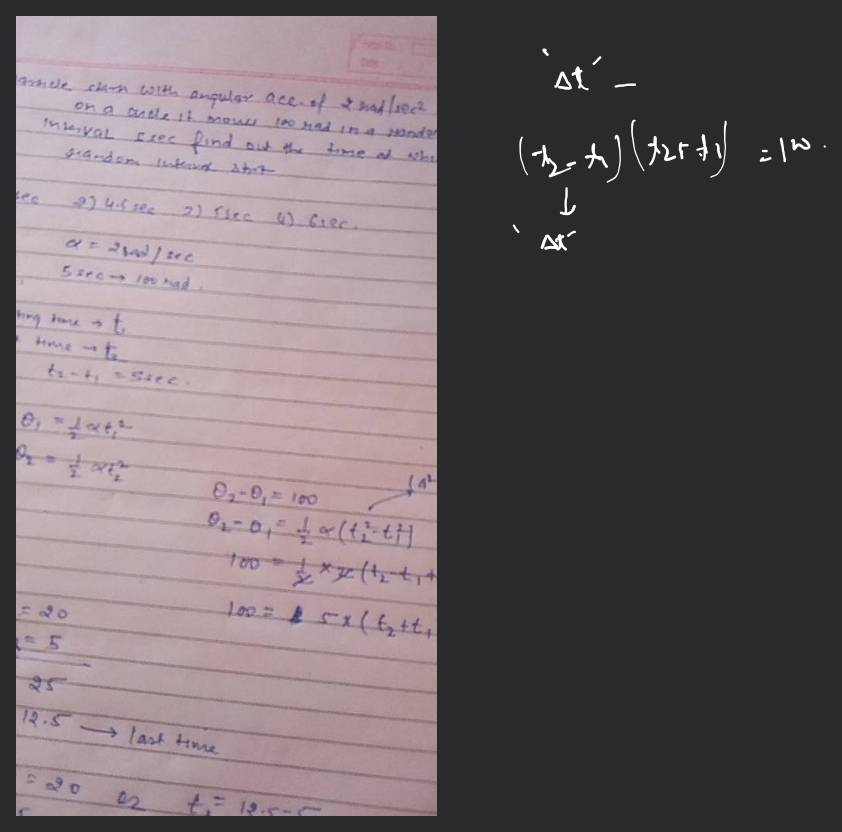 with angular acc. of 2 rad/sec²
on a circle it moves 100 rad in a random
Interval 5 sec find out the time at
random interval start
sec 2) 4.5 sec 3) 5 sec 4) 6 sec.
α = 2 rad/sec
5 sec → 100 rad.
ting time → t₁
time → t₂
t₂ - t₁ = 5 sec.
θ₁ = 1/2 αt₁²
θ₂ = 1/2 αt₂²
θ₂ - θ₁ = 100
θ₂ - θ₁ = 1/2 α (t₂² - t₁²)
100 = 1/2 × 2 (t₂ - t₁ +
100 = 5 × (t₂ + t₁
= 20
= 5
25
12.5 → last time
= 20 or t₁ = 12.5 - 5
'Δt' -
(t₂ - t₁)(t₂ + t₁) = 100.
↓
'Δt'